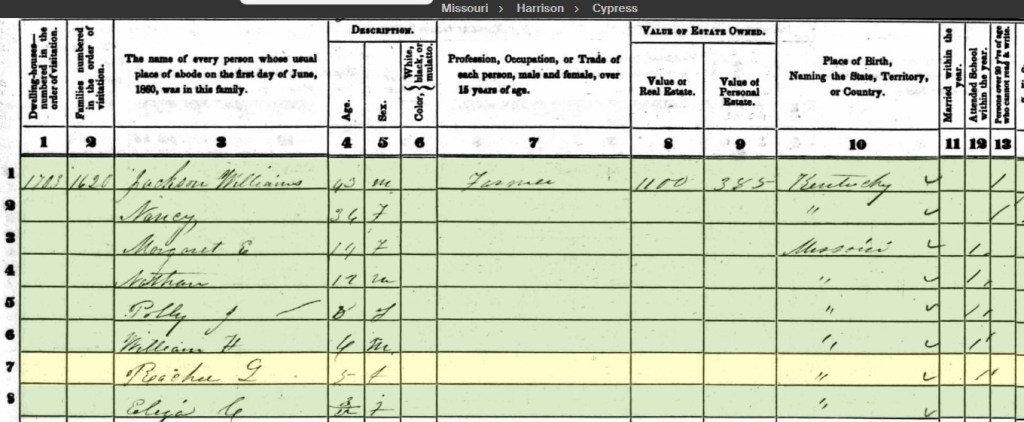 Missouri › Harrison › Cypress
DESCRIPTION.
VALUE OF ESTATE OWNED.
Dwelling-houses—numbered in the order of visitation.
Families numbered in the order of visitation.
The name of every person whose usual place of abode on the first day of June, 1860, was in this family.
Age.
Sex.
Color, White, black, or mulatto.
Profession, Occupation, or Trade of each person, male and female, over 15 years of age.
Value of Real Estate.
Value of Personal Estate.
Place of Birth, Naming the State, Territory, or Country.
Married within the year.
Attended School within the year.
Persons over 20 y'rs of age who cannot read & write.
1 2 3 4 5 6 7 8 9 10 11 12 13
1 1703 1620 Jackson Williams 43 m Farmer 1100 385 Kentucky / 
2 Nancy 36 f "
3 Margaret E f Missouri 1
4 Nathan 12 m " 1
5 Polly J 8 f " 1
6 William H 6 m " 1
7 G 5 f " 1
8 Eliza C 3/12 f "